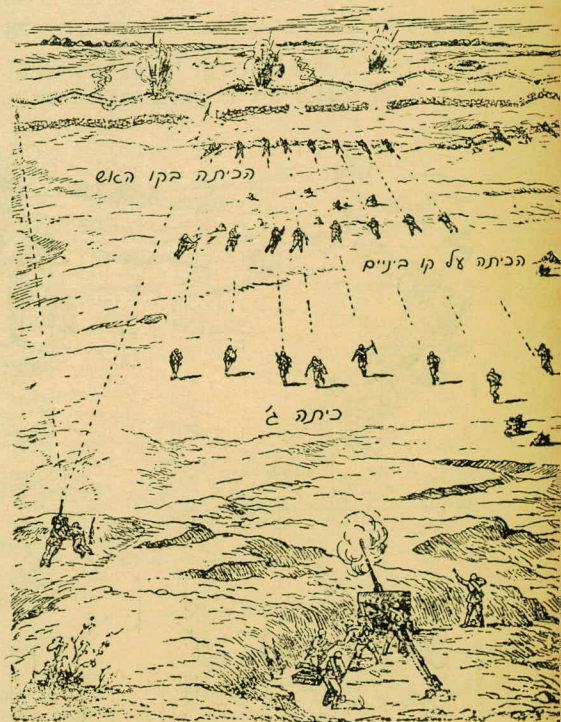 הכיתה בקו האש
הכיתה על קו ביניים
כיתה ג'